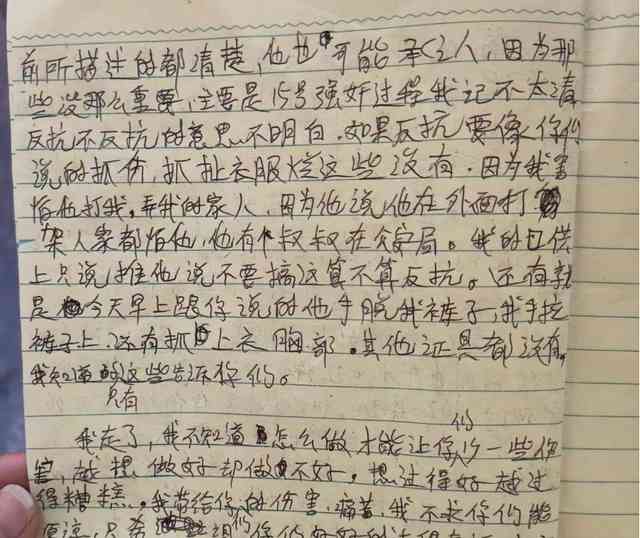 前所描述的都清楚,他也可能承认,因为那
些没那么重要,主要是15号强奸过程我记不太清
反抗不反抗的意思不明白,如果反抗要像你们
说的抓伤,抓扯衣服烂这些没有.因为我害
怕他打我,弄我的家人,因为他说他在外面打
架人家都怕他,他有个叔叔在公安局。我的口供
上只说推他说不要搞这算不算反抗。还有就
是今天早上跟你说的他手脱我裤子,我手拉
裤子上,还有抓上衣胸部.其他证具都没有,
我知道的只有这些告诉你们。
我走了,我不知道怎么做才能让你们少一些伤
害,越想做好却做不好,想过得好越过
得糟糕,我带给你们的伤害,痛苦,我不求你们能
原谅,只希